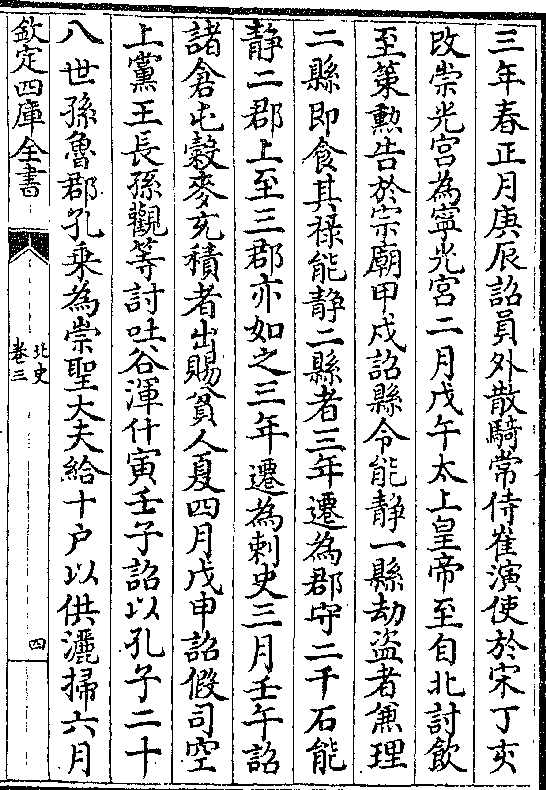 三年春正月庚辰詔員外散騎常侍崔演使於宋丁亥
改崇光宮為寧光宮二月戊午太上皇帝至自北討飲
至策勲告於宗廟甲戍詔縣令能静一縣劫盜者兼理
二縣即食其禄能静二縣者三年遷為郡守二千石能
静二郡上至三郡亦如之三年遷為刺史三月壬午詔
諸倉屯穀麥充積者出賜貧人夏四月戊申詔假司空
上黨王長孫觀等討吐谷渾什寅壬子詔以孔子二十
八世孫魯郡孔乗為崇聖大夫給十户以供灑掃六月
欽定四庫全書
北史
卷三
四